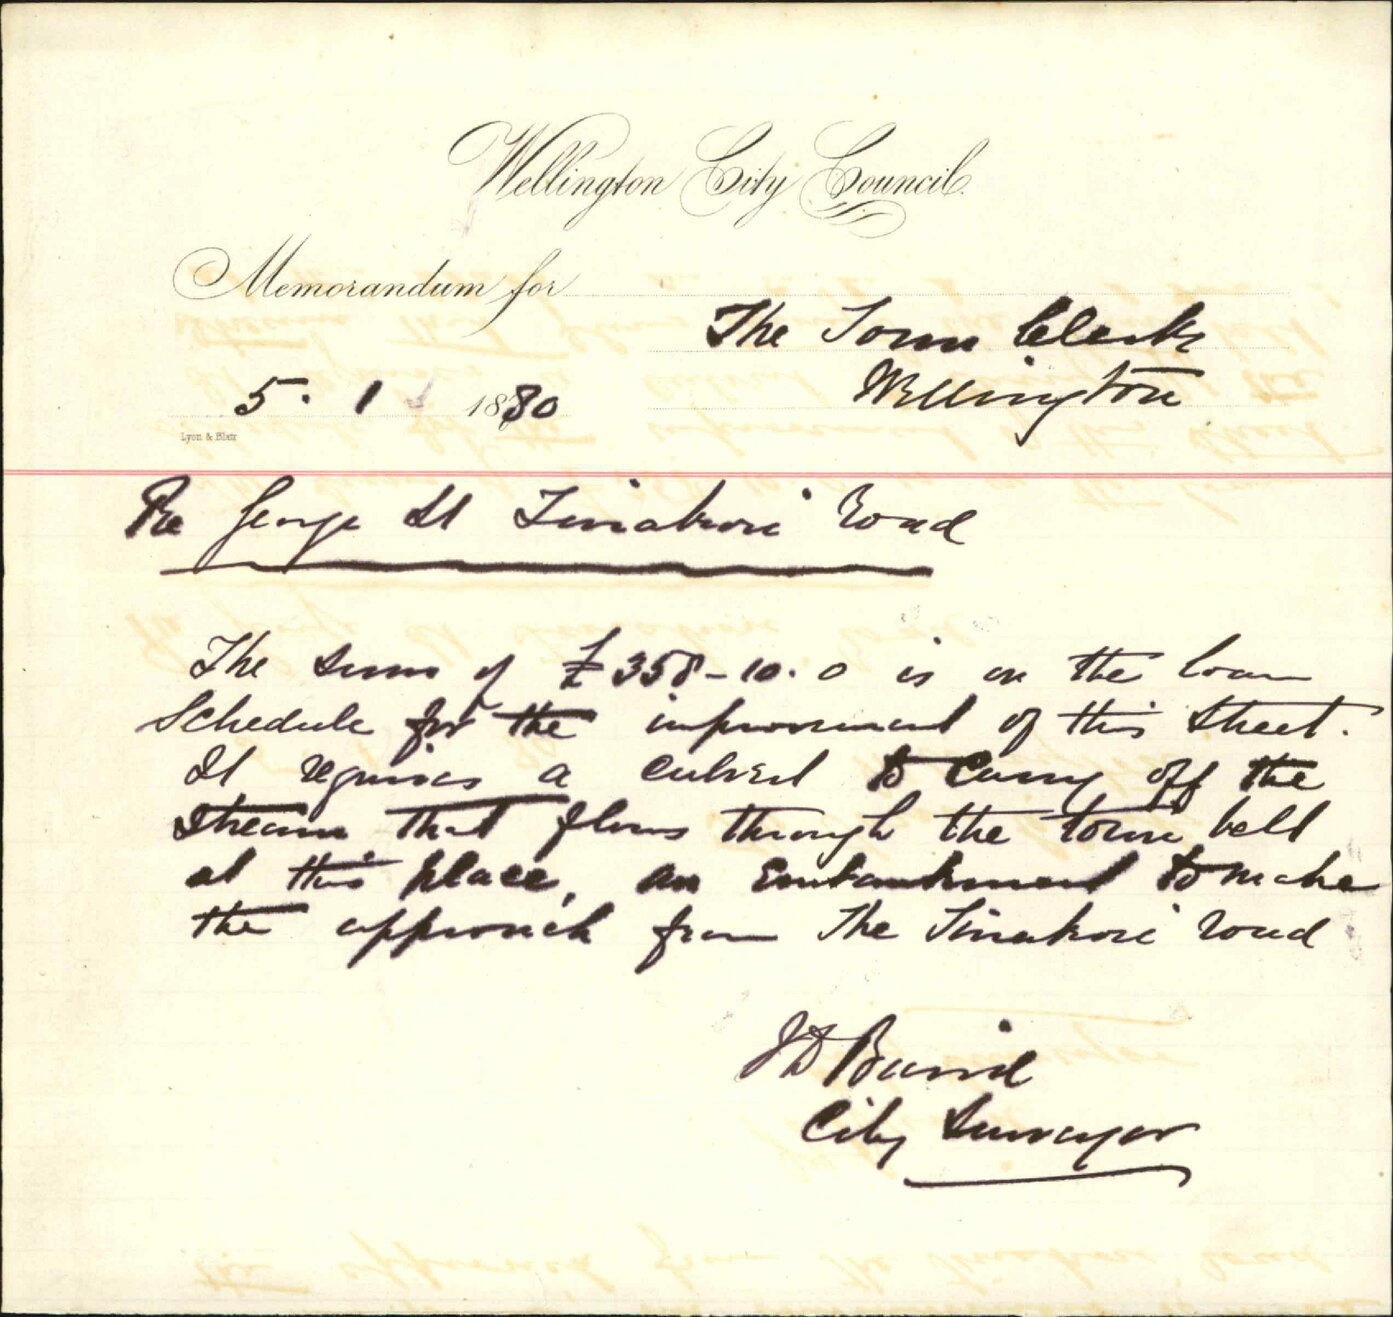 Wellington City Council.
Memorandum for
The Town Clerk
Wellington
5. 1 1880
Lyon & Blair
Re George St Tinakori Road
The sum of £358-10.0 is on the loan
Schedule for the improvement of this Street.
It requires a culvert to carry off the
stream that flows through the town belt
at this place, an Embankment to make
the approach from The Tinakori road
JD Baird
City Surveyor